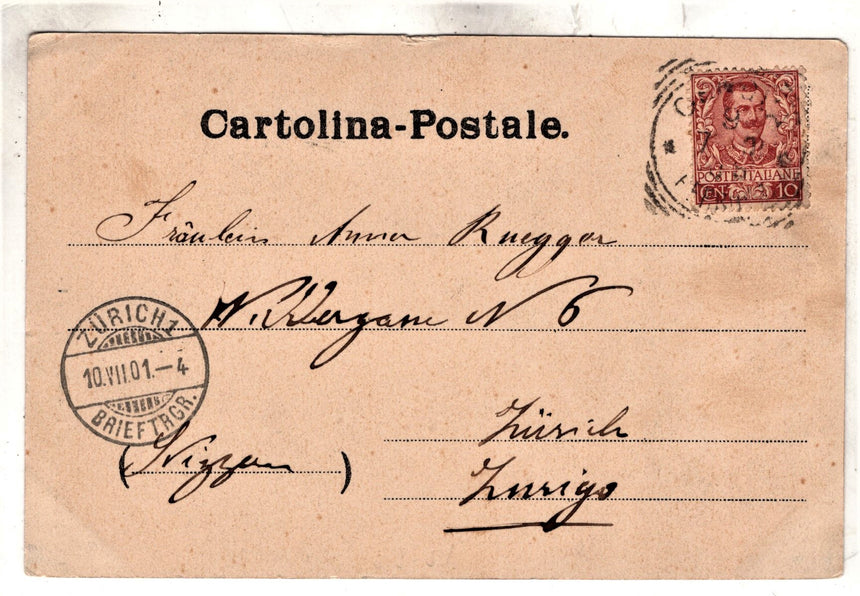 Cartolina-Postale.
POSTE ITALIANE
CEN. 10
Fräulein Anna Ruegger
N 6
ZÜRICH 1
10.VII.01.–4
BRIEFTRGR.
Zürich
(Svizzera)
Zurigo